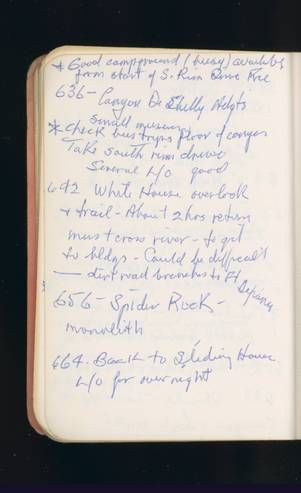 * Good campground (busy) available
from start of S. Rim Drive Free
636 - Canyon De Shelly Hdqts
small museum
* Check bus trips floor of canyon
Take South rim drive
Several L/O good
642 White House overlook
& trail - About 2 hrs return
must cross river - to get
to bldgs - Could be difficult
— dirt road branches to Ft Defiance
656 - Spider Rock -
monolith
664. Back to Sliding House
L/O for overnight